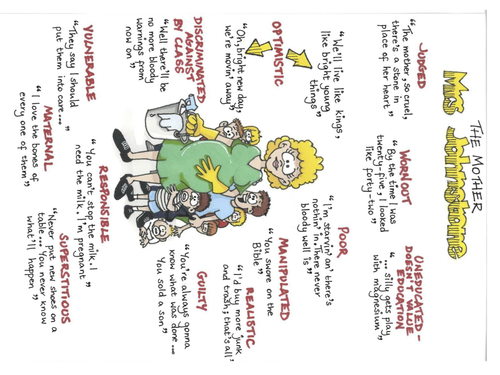 THE MOTHER
Mrs Johnstone
JUDGED
"The mother, so cruel,
there's a stone in
place of her heart"
WORN OUT
"By the time I was
twenty-five, I looked
like forty-two"
UNEDUCATED -
DOESN'T VALUE
EDUCATION
"... silly gets play
with magnesium"
OPTIMISTIC
"We'll live like kings,
like bright young
things"
"Oh, bright new day,
we're movin' away"
POOR
"I'm starvin' an' there's
nothin' in. There never
bloody well is"
MANIPULATED
"You swore on the
Bible"
REALISTIC
"I'd buy more junk
and trash; that's all"
DISCRIMINATED
AGAINST
BY CLASS
"Well there'll be
no more bloody
warnings from
now on"
GUILTY
"You're always gonna
know what was done...
You sold a son"
VULNERABLE
"They say I should
put them into care..."
MATERNAL
"I love the bones of
every one of them"
RESPONSIBLE
"You can't stop the milk. I
need the milk. I'm pregnant"
SUPERSTITIOUS
"Never put new shoes on a
table... You never know
what'll happen"